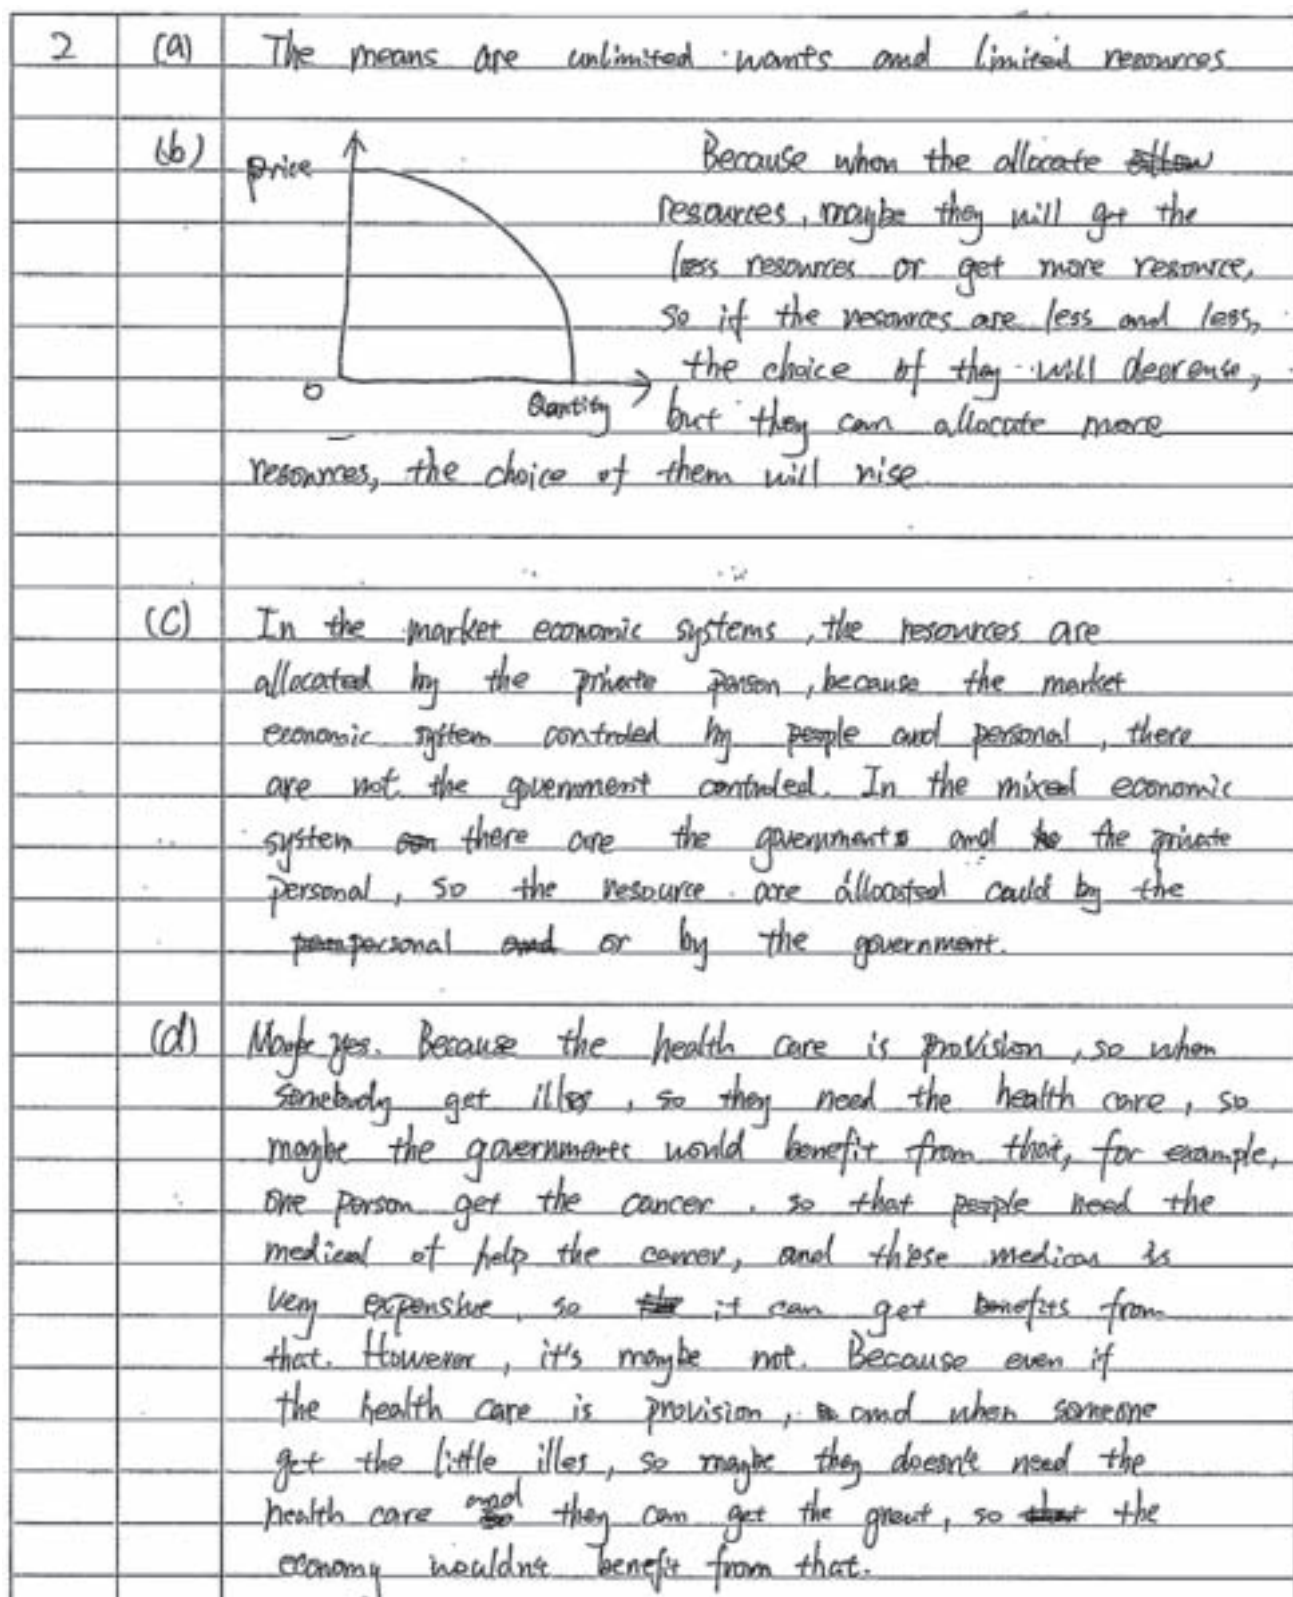 2 (a) The means are unlimited wants and limited resources
(b) price
0
Quantity
Because when the allocate
resources, maybe they will get the
less resources or get more resource,
so if the resources are less and less,
the choice of they will decrease,
but they can allocate more
resources, the choice of them will rise.
(c) In the market economic systems, the resources are
allocated by the private person, because the market
economic system controled by people and personal, there
are not the government controled. In the mixed economic
system there are the governments and the private
personal, so the resource are allocated could by the
personal or by the government.
(d) Maybe yes. Because the health care is provision, so when
somebody get illes, so they need the health care, so
maybe the governments would benefit from that, for example,
one person get the cancer, so that people need the
medical of help the cancer, and these medical is
very expensive, so it can get benefits from
that. However, it's maybe not. Because even if
the health care is provision, and when someone
get the little illes, so maybe they doesn't need the
health care and they can get the great, so the
economy wouldn't benefit from that.